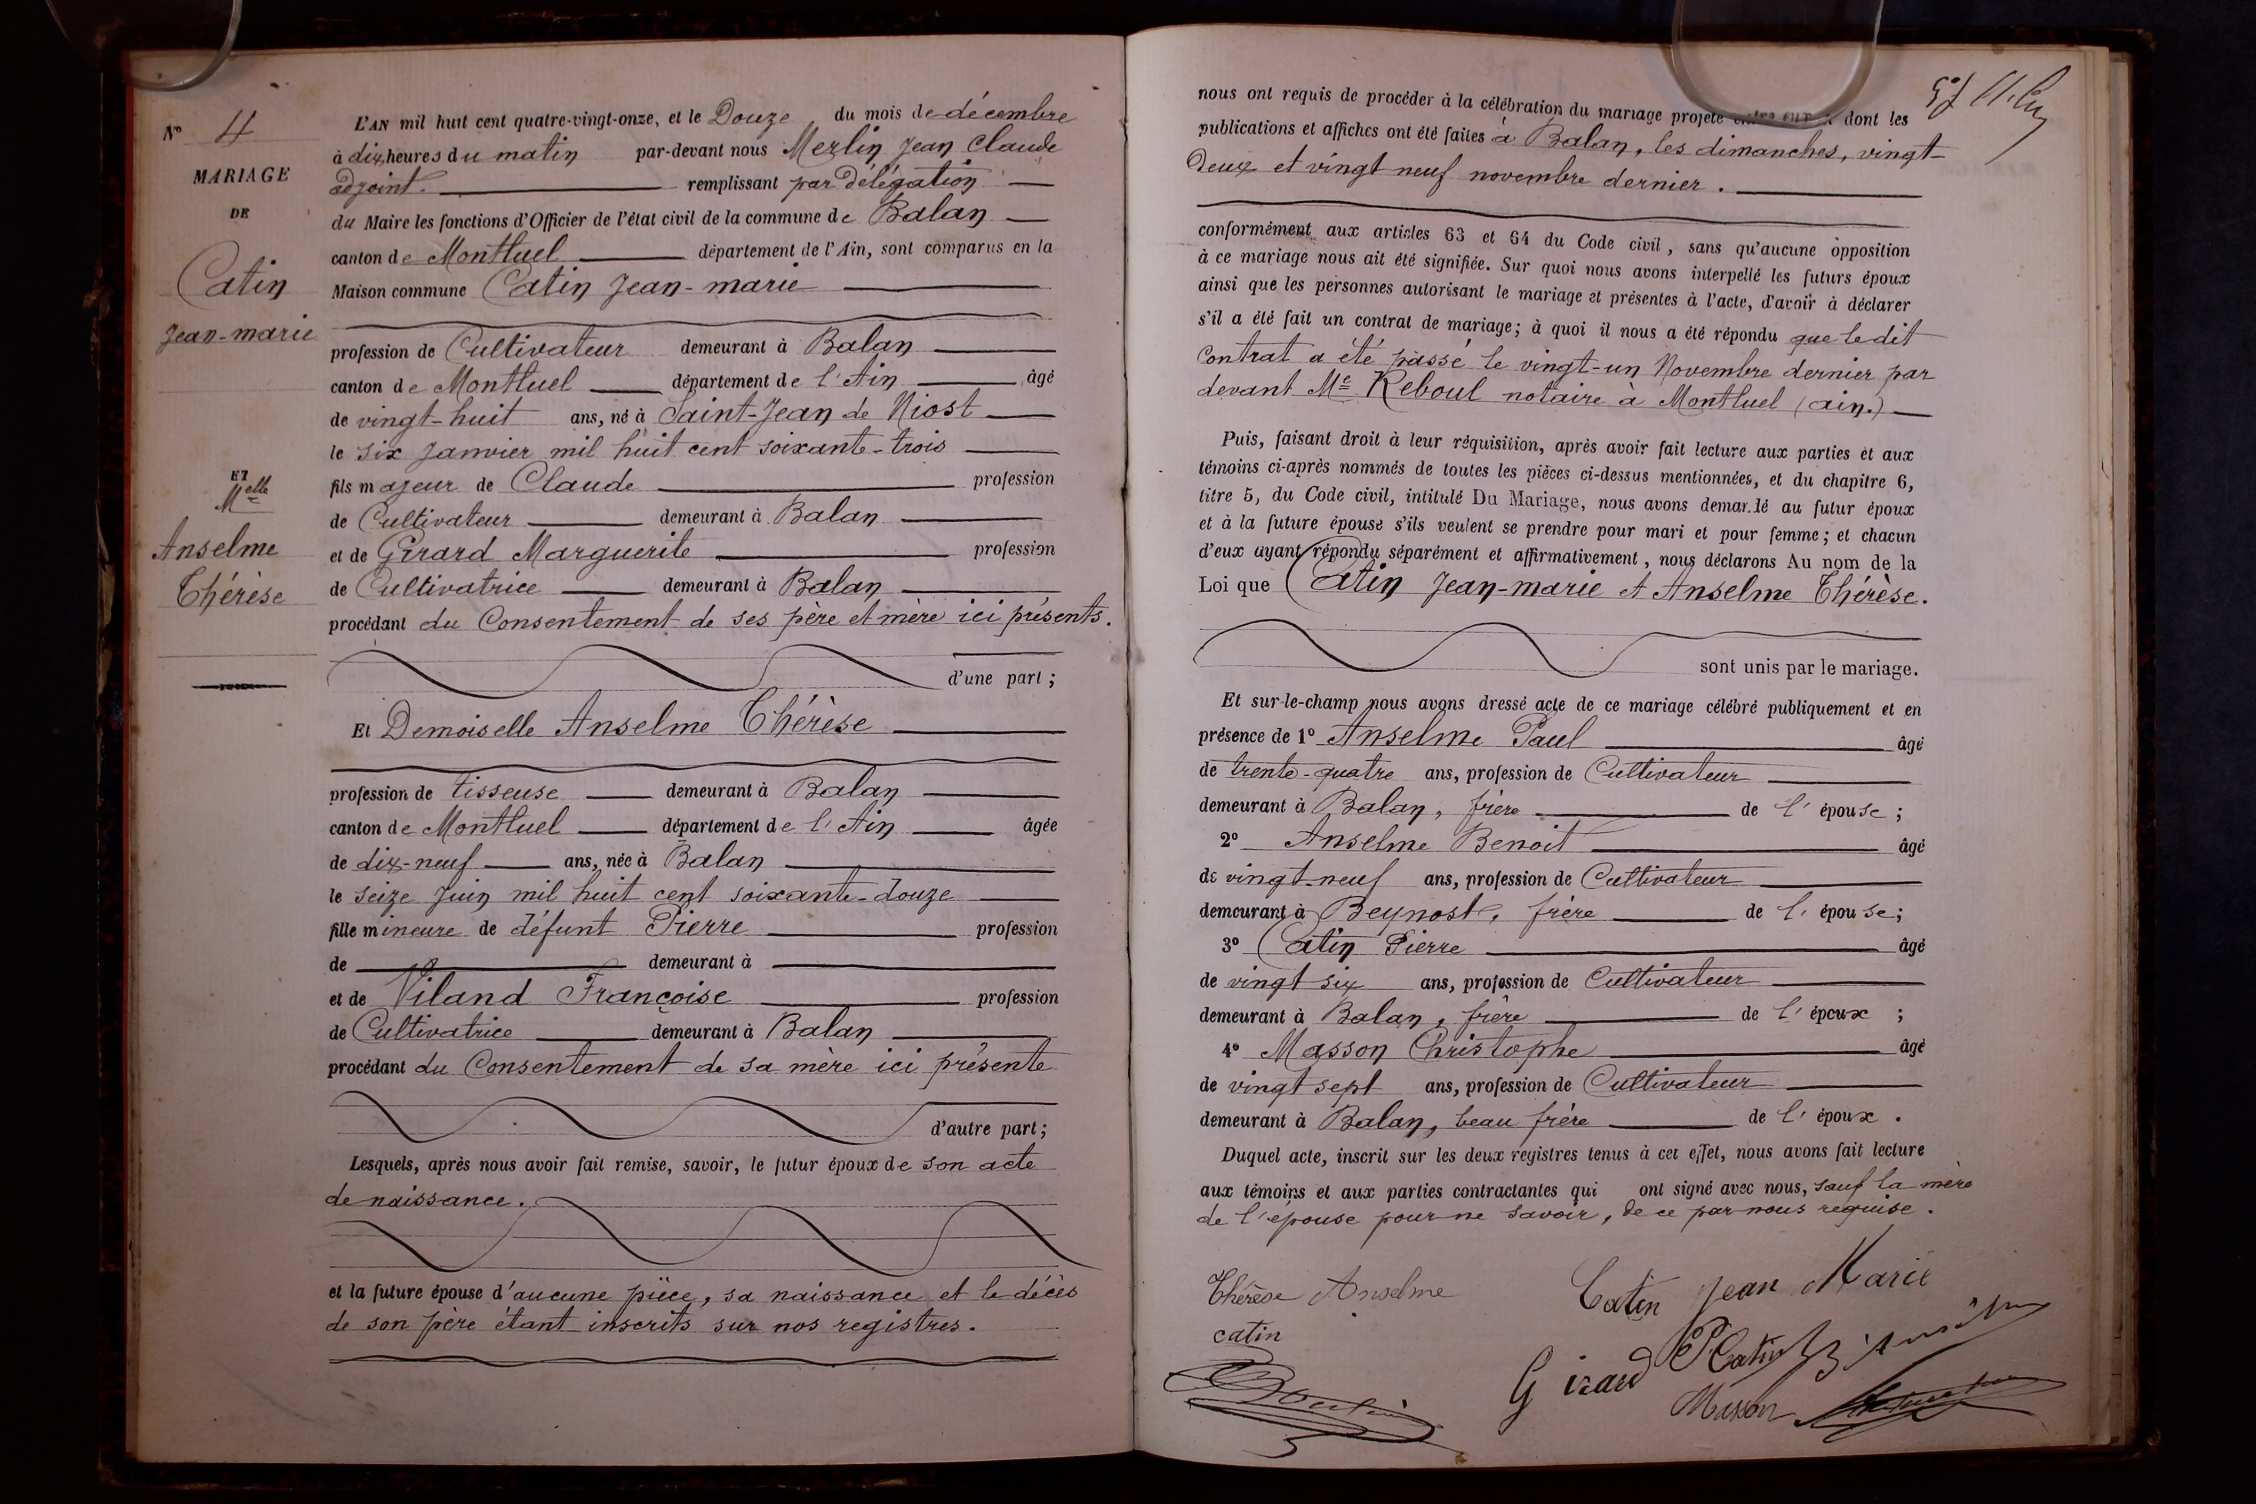 N° 4
MARIAGE
DE
Catin
Jean-marie
ET
Melle
Anselme
Thérèse
L'AN mil huit cent quatre-vingt-onze, et le Douze du mois de décembre
à dix heures du matin par-devant nous Merlin Jean Claude
adjoint. remplissant par Délégation
du Maire les fonctions d'Officier de l'état civil de la commune de Balan
canton de Montluel département de l'Ain, sont comparus en la
Maison commune Catin Jean-marie
profession de Cultivateur demeurant à Balan
canton de Montluel département de l'Ain âgé
de vingt-huit ans, né à Saint-Jean de Niost
le six Janvier mil huit cent soixante-trois
fils majeur de Claude profession
de Cultivateur demeurant à Balan
et de Girard Marguerite profession
de Cultivatrice demeurant à Balan
procédant du Consentement de ses père et mère ici présents.
d'une part;
Et Demoiselle Anselme Thérèse
profession de tisseuse demeurant à Balan
canton de Montluel département de l'Ain âgée
de dix-neuf ans, née à Balan
le seize Juin mil huit cent soixante-douze
fille mineure de défunt Pierre profession
de demeurant à
et de Viland Françoise profession
de Cultivatrice demeurant à Balan
procédant du Consentement de sa mère ici présente
d'autre part;
Lesquels, après nous avoir fait remise, savoir, le futur époux de son acte
de naissance.
et la future épouse d'aucune pièce, sa naissance et le décès
de son père étant inscrits sur nos registres.
nous ont requis de procéder à la célébration du mariage projeté entre eux dont les
publications et affiches ont été faites à Balan, les dimanches, vingt-
Deux et vingt neuf novembre dernier.
conformément aux articles 63 et 64 du Code civil, sans qu'aucune opposition
à ce mariage nous ait été signifiée. Sur quoi nous avons interpellé les futurs époux
ainsi que les personnes autorisant le mariage et présentes à l'acte, d'avoir à déclarer
s'il a été fait un contrat de mariage; à quoi il nous a été répondu que le dit
Contrat a été passé le vingt-un Novembre dernier par
devant Me Reboul notaire à Montluel (ain.)
Puis, faisant droit à leur réquisition, après avoir fait lecture aux parties et aux
témoins ci-après nommés de toutes les pièces ci-dessus mentionnées, et du chapitre 6,
titre 5, du Code civil, intitulé Du Mariage, nous avons demandé au futur époux
et à la future épouse s'ils veulent se prendre pour mari et pour femme; et chacun
d'eux ayant répondu séparément et affirmativement, nous déclarons Au nom de la
Loi que Catin Jean-marie et Anselme Thérèse.
sont unis par le mariage.
Et sur-le-champ nous avons dressé acte de ce mariage célébré publiquement et en
présence de 1° Anselme Paul âgé
de trente-quatre ans, profession de Cultivateur
demeurant à Balan, frère de l'épouse;
2° Anselme Benoit âgé
de vingt-neuf ans, profession de Cultivateur
demeurant à Beynost, frère de l'épouse;
3° Catin Pierre âgé
de vingt six ans, profession de Cultivateur
demeurant à Balan, frère de l'époux;
4° Masson Christophe âgé
de vingt sept ans, profession de Cultivateur
demeurant à Balan, beau frère de l'époux.
Duquel acte, inscrit sur les deux registres tenus à cet effet, nous avons fait lecture
aux témoins et aux parties contractantes qui ont signé avec nous, sauf la mère
de l'épouse pour ne savoir, de ce par nous requise.
Thérèse Anselme Catin Jean Marie
catin
Girard P Catin
Masson